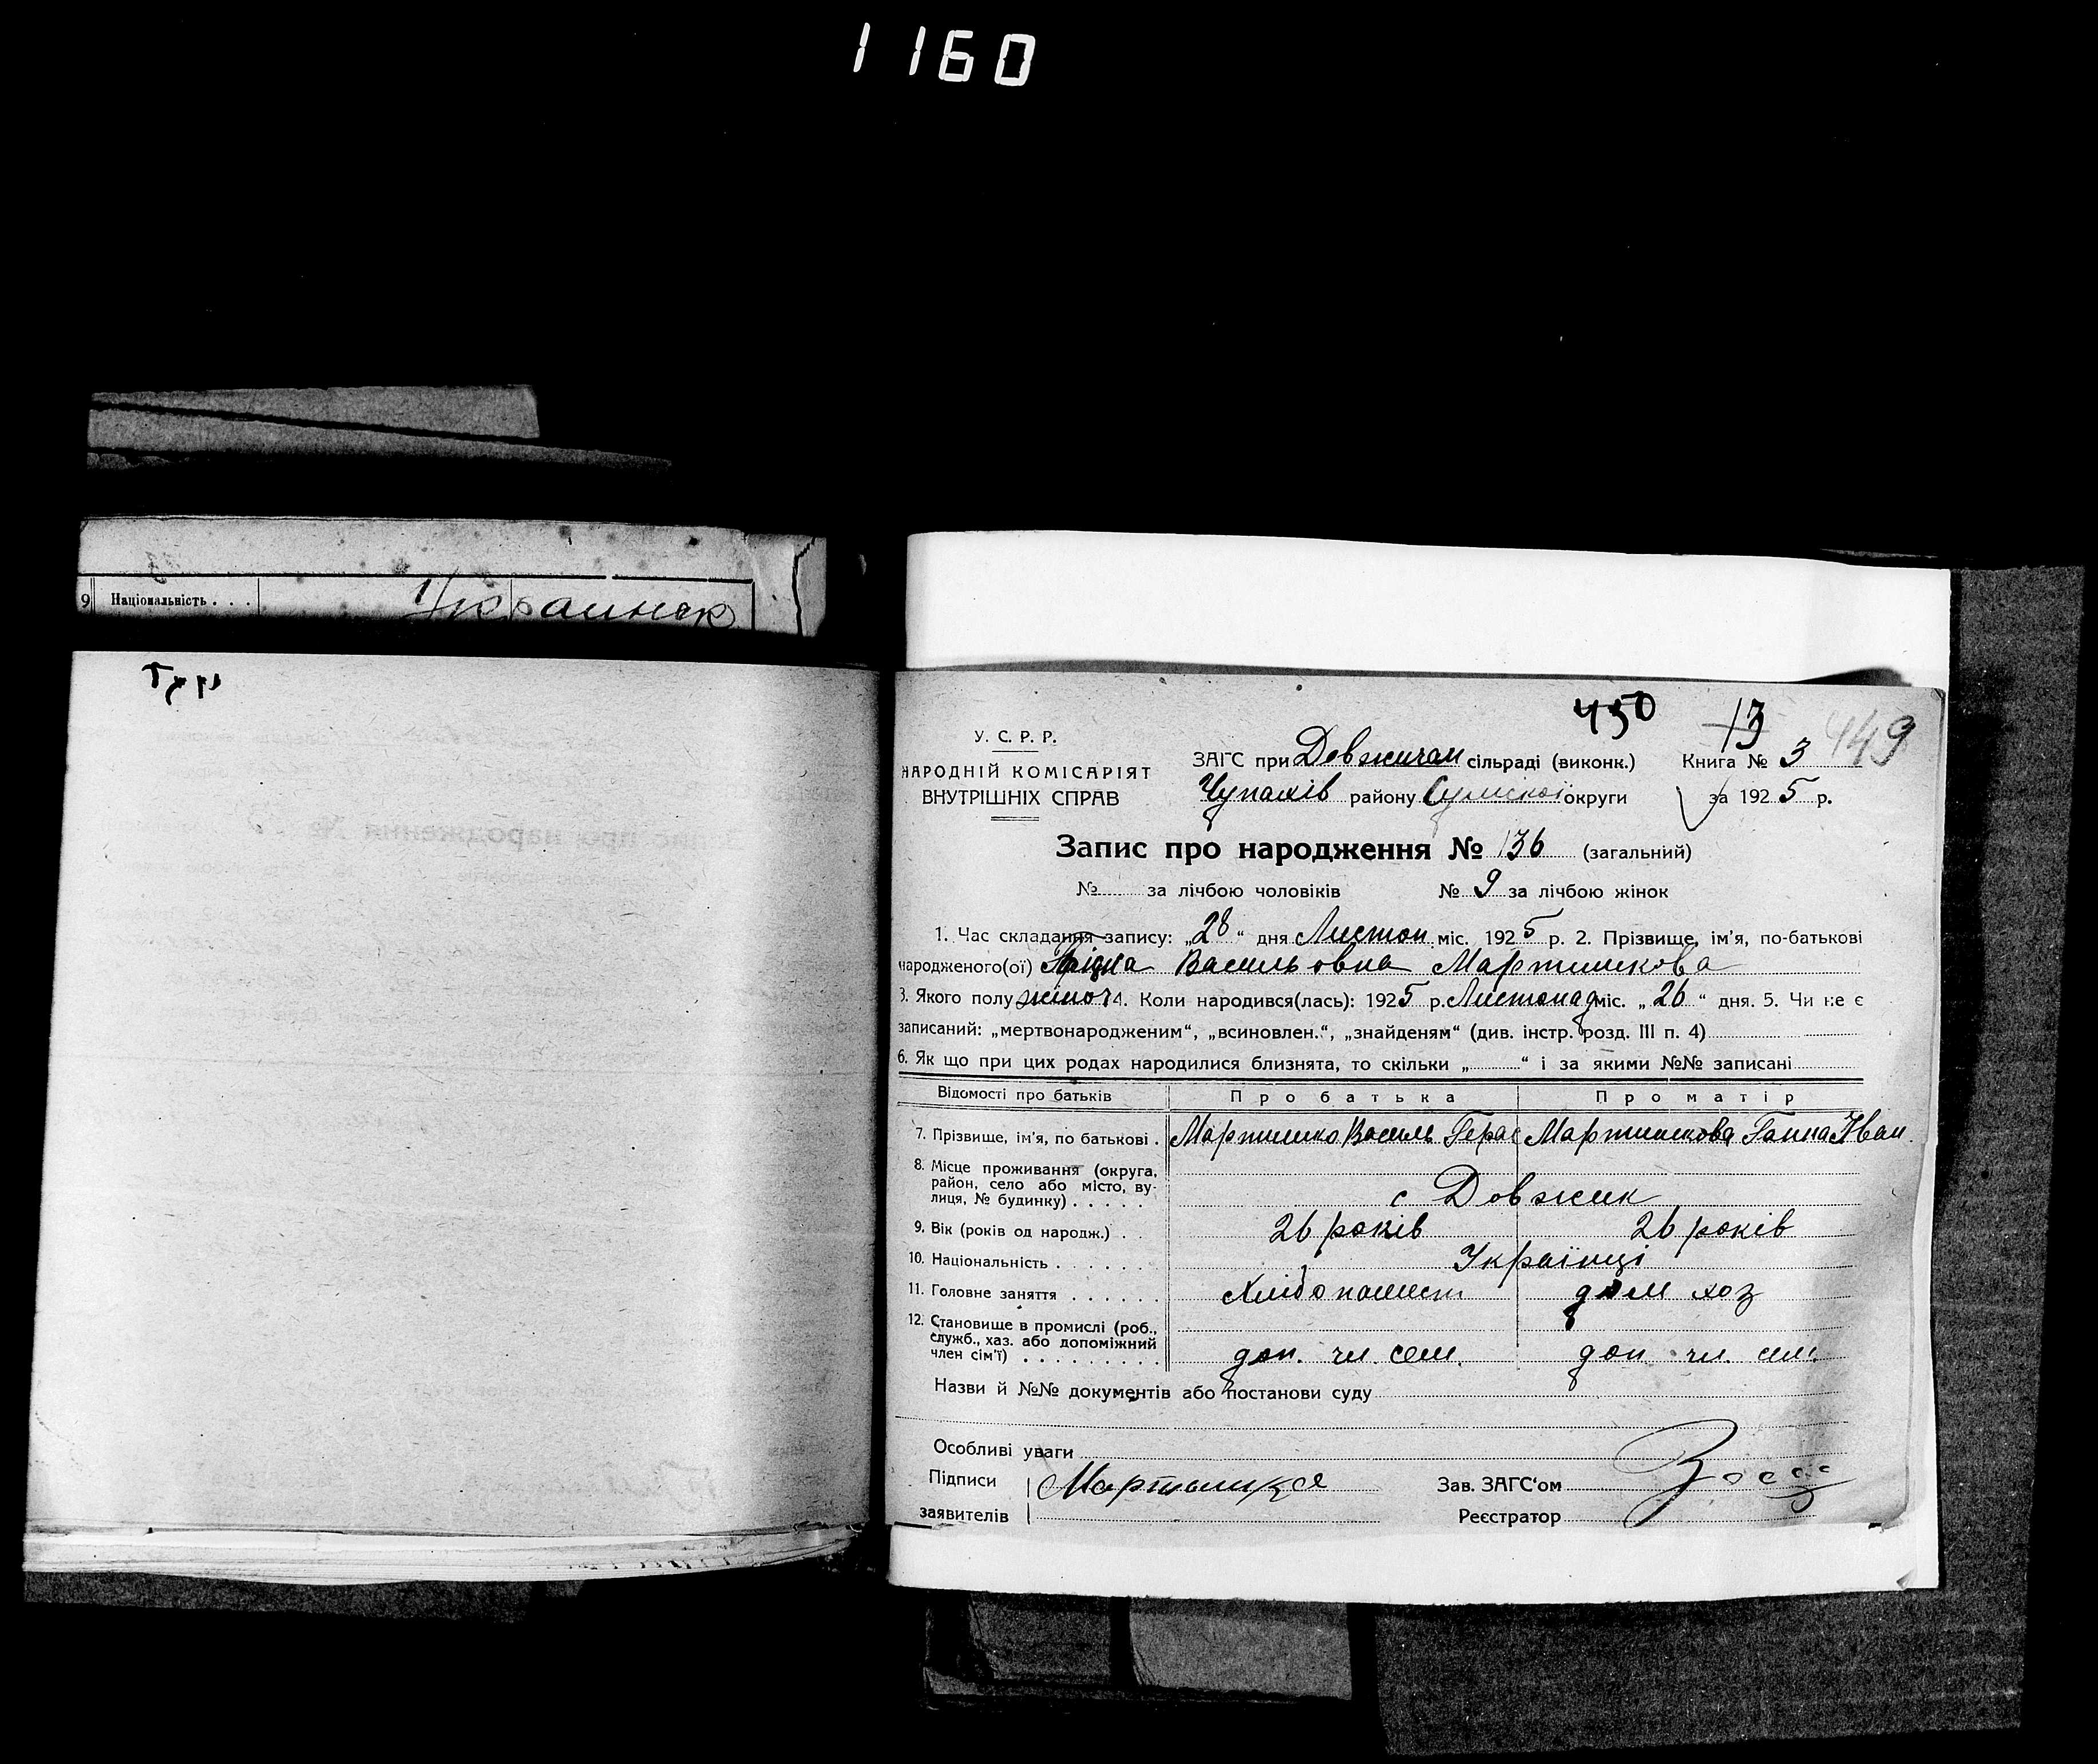 1160
9 Національність . . . Украинск
450 13 449
У. С. Р. Р.
НАРОДНІЙ КОМІСАРІЯТ
ВНУТРІШНІХ СПРАВ
ЗАГС при Довжичан сільраді (виконк.) Книга № 3
Чупахів району Сумської округи за 1925 р.
Запис про народження № 136 (загальний)
№ за лічбою чоловіків № 9 за лічбою жінок
1. Час складання запису: „28“ дня Листоп. міс. 1925 р. 2. Прізвище, ім'я, по-батькові
народженого(ої) Васильовна Мартишкова
3. Якого полу жіноч 4. Коли народився(лась): 1925 р. Листопад міс. „26“ дня. 5. Чи не є
записаний: „мертвонародженим“, „всиновлен.“, „знайденям“ (див. інстр. розд. III п. 4)
6. Як що при цих родах народилися близнята, то скільки „ “ і за якими №№ записані
Відомості про батьків Про батька Про матір
7. Прізвище, ім'я, по батькові . Мартишко Василь Герас Мартишкова Ганна Іван.
8. Місце проживання (округа,
район, село або місто, ву-
лиця, № будинку) . . . . . с Довжик
9. Вік (років од народж.) . . 26 років 26 років
10. Національність . . . . . . Українці
11. Головне заняття . . . . . . Хлібопашест дом хоз
12. Становище в промислі (роб.,
служб., хаз. або допоміжний
член сім'ї) . . . . . . . . . доп. чл. сем. доп чл. сем.
Назви й №№ документів або постанови суду
Особливі уваги
Підписи Мартишко Зав. ЗАГС'ом
заявителів Реєстратор